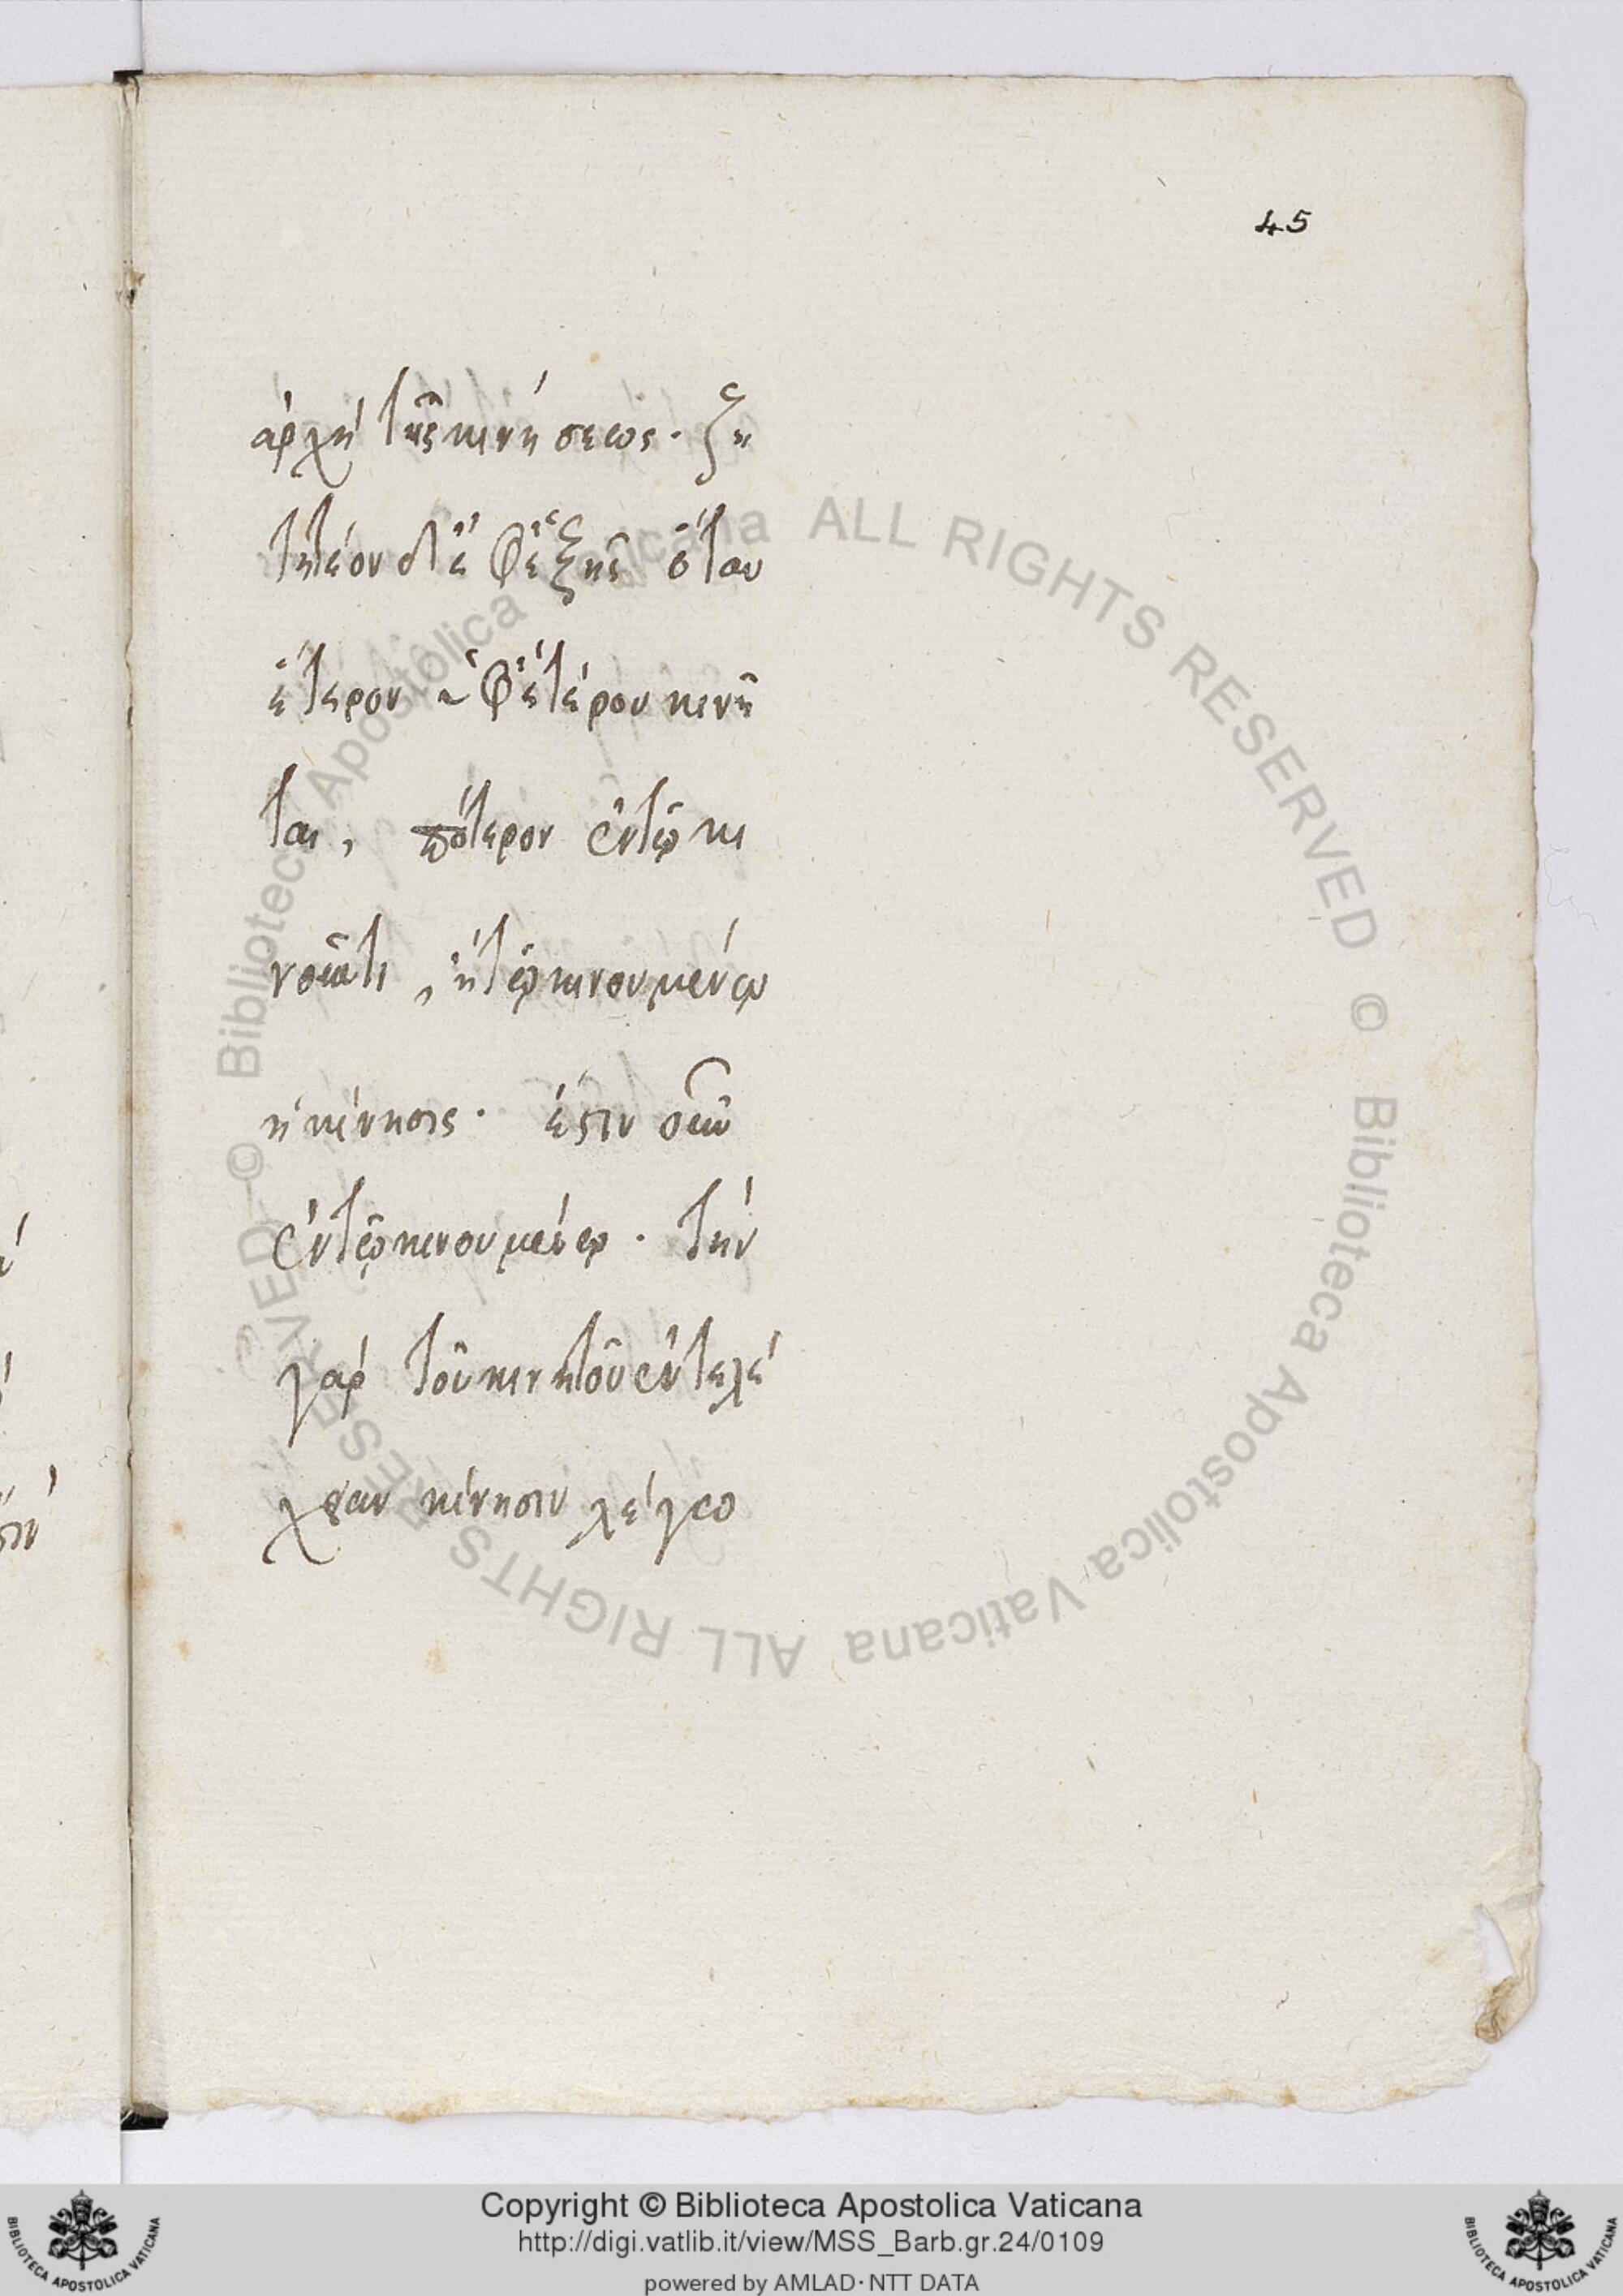 45
ἀρχὴ τῆς κινήσεως· ζη
τητέον δ' ἐφεξῆς ὅταν
ἕτερον ὑφ' ἑτέρου κινῆ
ται, πότερον ἐν τῷ κι
νοῦντι, ἢ τῷ κινουμένῳ
ἡ κίνησις· ἔστιν οὖν
ἐν τῷ κινουμένῳ· τὴν
γὰρ τοῦ κινητοῦ ἐντελέ
χειαν κίνησιν λέγω
© Biblioteca Apostolica Vaticana ALL RIGHTS RESERVED © Biblioteca Apostolica Vaticana ALL RIGHTS RESERVED
Copyright © Biblioteca Apostolica Vaticana
http://digi.vatlib.it/view/MSS_Barb.gr.24/0109
powered by AMLAD·NTT DATA
BIBLIOTECA APOSTOLICA VATICANA
BIBLIOTECA APOSTOLICA VATICANA